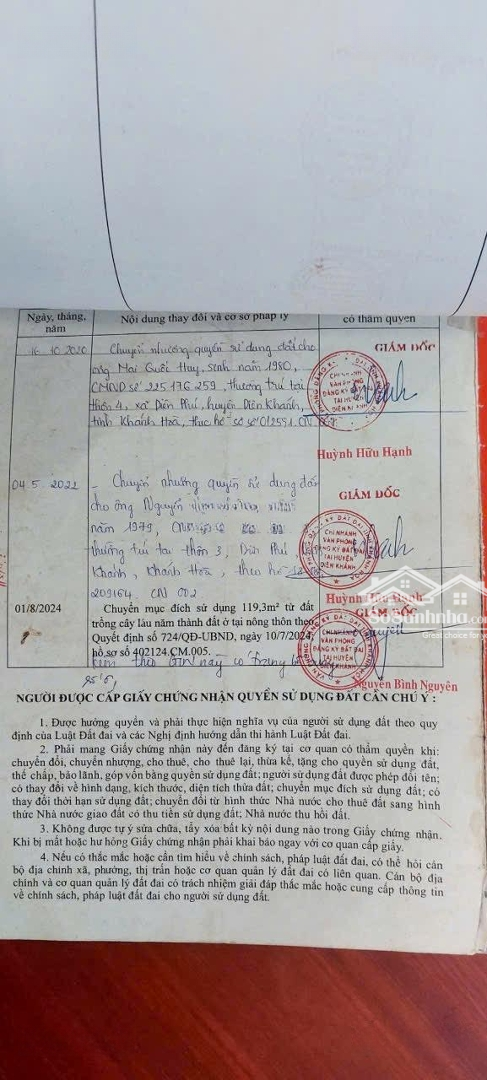 Ngày, tháng, năm
Nội dung thay đổi và cơ sở pháp lý
có thẩm quyền
16.10.2020
Chuyển nhượng quyền sử dụng đất cho
ông Mai Quốc Huy, sinh năm 1980,
CMND số 225 176 259, thường trú tại
thôn 4, xã Diên Phú, huyện Diên Khánh,
tỉnh Khánh Hoà, theo hồ sơ số 012591.CN
GIÁM ĐỐC
CHI NHÁNH
VĂN PHÒNG
ĐĂNG KÝ ĐẤT ĐAI
TẠI HUYỆN
DIÊN KHÁNH
Huỳnh Hữu Hạnh
04.5.2022
- Chuyển nhượng quyền sử dụng đất
cho ông Nguyễn
năm 1979,
thường trú tại thôn 3, Diên Phú
Khánh, Khánh Hoà, theo hồ sơ
209164. CN
GIÁM ĐỐC
CHI NHÁNH
VĂN PHÒNG
ĐĂNG KÝ ĐẤT ĐAI
TẠI HUYỆN
DIÊN KHÁNH
Huỳnh Hữu Hạnh
01/8/2024
Chuyển mục đích sử dụng 119,3m² từ đất
trồng cây lâu năm thành đất ở tại nông thôn theo
Quyết định số 724/QĐ-UBND, ngày 10/7/2024,
hồ sơ số 402124.CM.005.
GIÁM ĐỐC
CHI NHÁNH
VĂN PHÒNG
ĐĂNG KÝ ĐẤT ĐAI
TẠI HUYỆN
DIÊN KHÁNH
Nguyễn Bình Nguyên
Kèm theo GCN này có trang
SoSanhNha.com
Great choice for
NGƯỜI ĐƯỢC CẤP GIẤY CHỨNG NHẬN QUYỀN SỬ DỤNG ĐẤT CẦN CHÚ Ý :
1. Được hưởng quyền và phải thực hiện nghĩa vụ của người sử dụng đất theo quy
định của Luật Đất đai và các Nghị định hướng dẫn thi hành Luật Đất đai.
2. Phải mang Giấy chứng nhận này đến đăng ký tại cơ quan có thẩm quyền khi:
chuyển đổi, chuyển nhượng, cho thuê, cho thuê lại, thừa kế, tặng cho quyền sử dụng đất,
thế chấp, bảo lãnh, góp vốn bằng quyền sử dụng đất; người sử dụng đất được phép đổi tên;
có thay đổi về hình dạng, kích thước, diện tích thửa đất; chuyển mục đích sử dụng đất; có
thay đổi thời hạn sử dụng đất; chuyển đổi từ hình thức Nhà nước cho thuê đất sang hình
thức Nhà nước giao đất có thu tiền sử dụng đất; Nhà nước thu hồi đất.
3. Không được tự ý sửa chữa, tẩy xóa bất kỳ nội dung nào trong Giấy chứng nhận.
Khi bị mất hoặc hư hỏng Giấy chứng nhận phải khai báo ngay với cơ quan cấp giấy.
4. Nếu có thắc mắc hoặc cần tìm hiểu về chính sách, pháp luật đất đai, có thể hỏi cán
bộ địa chính xã, phường, thị trấn hoặc cơ quan quản lý đất đai có liên quan. Cán bộ địa
chính và cơ quan quản lý đất đai có trách nhiệm giải đáp thắc mắc hoặc cung cấp thông tin
về chính sách, pháp luật đất đai cho người sử dụng đất.